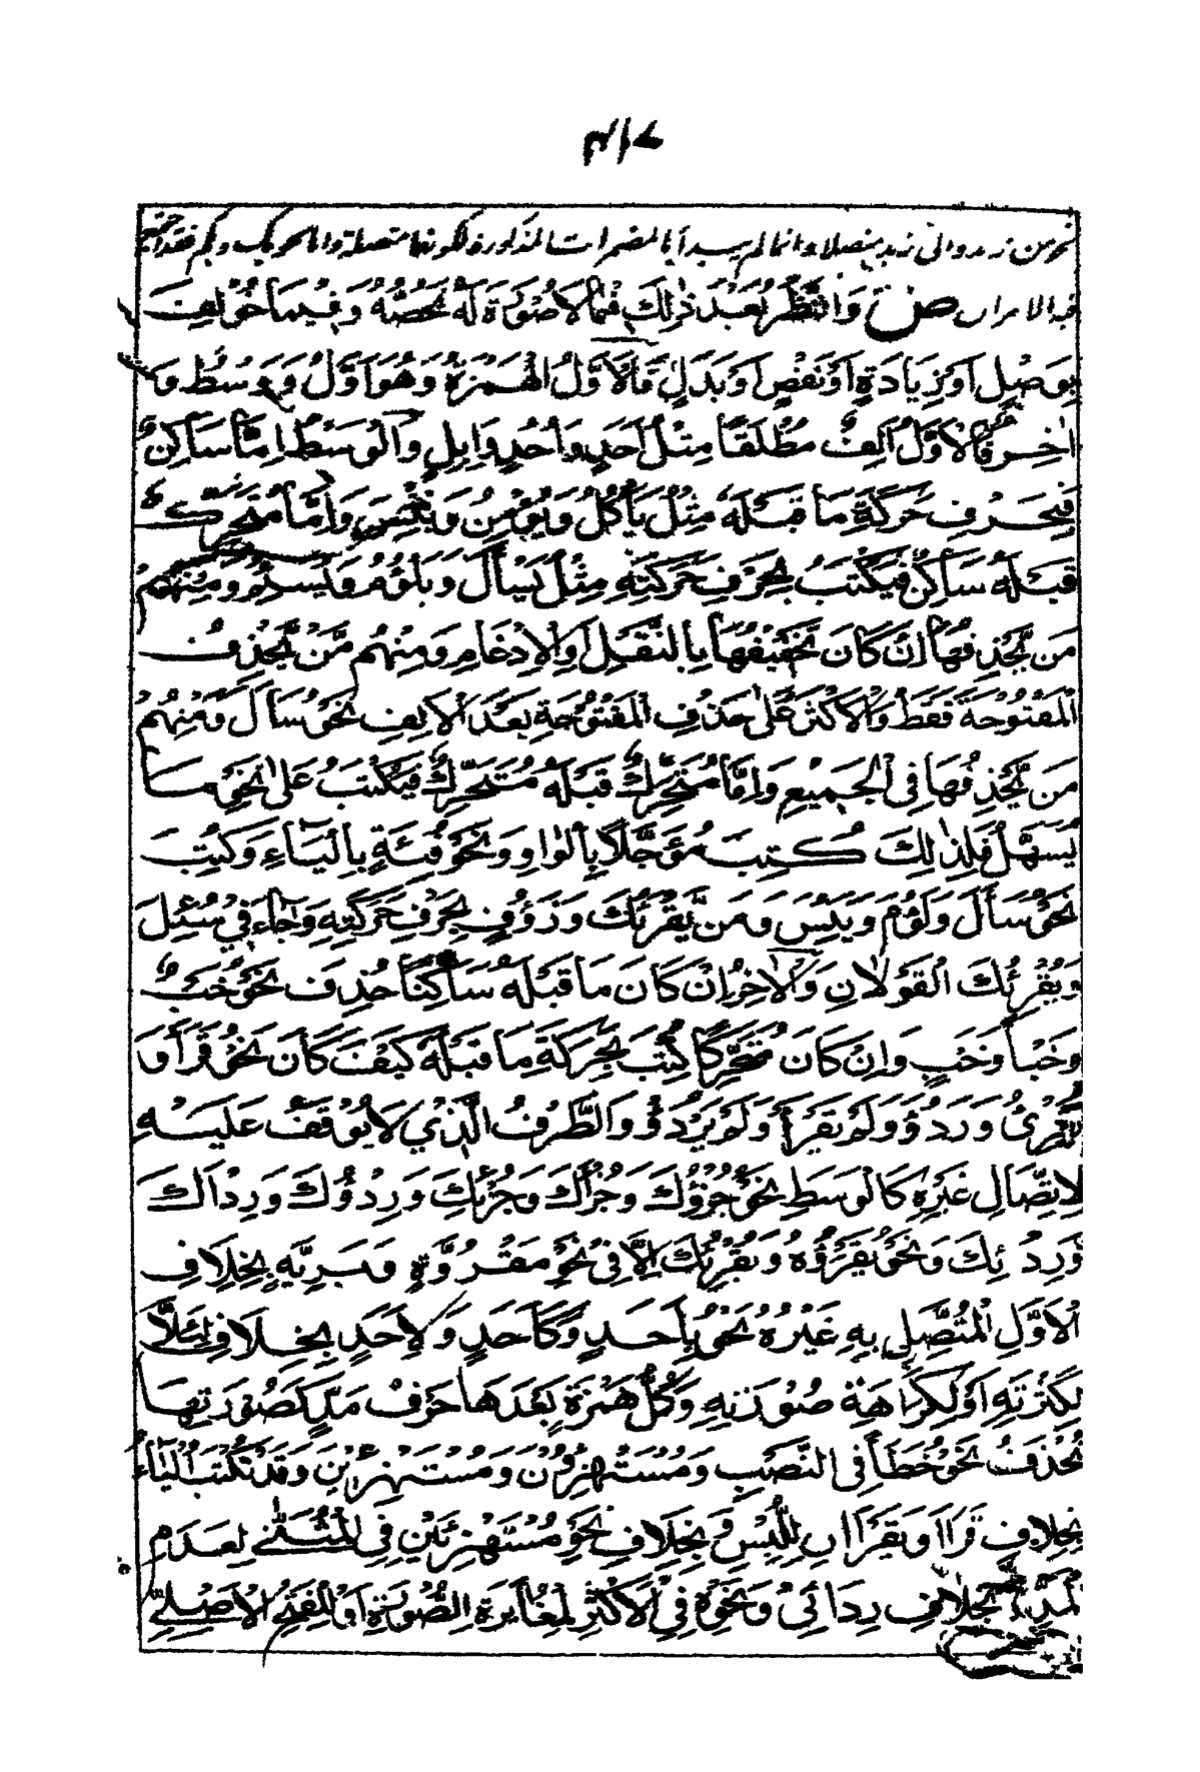 نحو من زيد والى زيد منفصلا وانما لم يبدأ بالمضمرات المذكورة لكونها متصلة واما نحو بك وبكم فقد اجتمع
فيه الامران ص وَالنَّظَرُ بَعْدَ ذٰلِكَ فِيْمَا لَا صُوْرَةَ لَهُ تَخُصُّهُ وَفِيْمَا خُوْلِفَ
بِوَصْلٍ اَوْ زِيَادَةٍ اَوْ نَقْصٍ اَوْ بَدَلٍ فَالْاَوَّلُ الْهَمْزَةُ وَهُوَ اَوَّلٌ وَوَسْطٌ وَ
اٰخِرٌ فَالْاَوَّلُ اَلِفٌ مُطْلَقًا مِثْلُ اَحَدٍ وَاُحُدٍ وَاِبِلٍ وَالْوَسَطُ اِمَّا سَاكِنٌ
فَبِحَرْفِ حَرَكَةِ مَا قَبْلَهُ مِثْلُ يَأْكُلُ وَيُؤْمِنُ وَبِئْسَ وَاِمَّا مُتَحَرِّكٌ
قَبْلَهُ سَاكِنٌ فَيُكْتَبُ بِحَرْفِ حَرَكَتِهِ مِثْلُ يَسْأَلُ وَيَلْؤُمُ وَيُسْئِمُ وَمِنْهُمْ
مَنْ يَحْذِفُهَا اِنْ كَانَ تَخْفِيْفُهَا بِالنَّقْلِ اَوِ الْاِدْغَامِ وَمِنْهُمْ مَّنْ يَحْذِفُ
الْمَفْتُوْحَةَ فَقَطْ وَالْاَكْثَرُ عَلٰى حَذْفِ الْمَفْتُوْحَةِ بَعْدَ الْاَلِفِ نَحْوُ سَاأَلَ وَمِنْهُمْ
مَنْ يَحْذِفُهَا فِى الْجَمِيْعِ وَاِمَّا مُتَحَرِّكٌ قَبْلَهُ مُتَحَرِّكٌ فَيُكْتَبُ عَلٰى نَحْوِ مَا
يُسَهَّلُ فَلِذٰلِكَ كُتِبَ مُؤَجَّلًا بِالْوَاوِ وَنَحْوُ فِئَةٍ بِالْيَاءِ وَكُتِبَ
نَحْوُ سَأَلَ وَلَؤُمَ وَيَئِسَ وَمِنْ يُّقْرِئُكَ وَرَؤُوْفٍ بِحَرْفِ حَرَكَتِهِ وَجَاءَ فِيْ سُئِلَ
وَيُقْرِئُكَ الْقَوْلَانِ وَالْاٰخِرُ اِنْ كَانَ مَا قَبْلَهُ سَاكِنًا حُذِفَ نَحْوُ خَبْءٌ
وَخَبْأً وَخَبْءٍ وَاِنْ كَانَ مُتَحَرِّكًا كُتِبَ بِحَرَكَةِ مَا قَبْلَهُ كَيْفَ كَانَ نَحْوُ قَرَأَ وَ
يُقْرِئُ وَرَدُؤَ وَلَمْ يَقْرَأْ وَلَمْ يَرْدُؤْ وَالطَّرْفُ الَّذِيْ لَا يُوْقَفُ عَلَيْهِ
لِاتِّصَالِ غَيْرِهٖ كَالْوَسَطِ نَحْوُ جُزْؤُكَ وَجُزْأَكَ وَجُزْئِكَ وَرِدْؤُكَ وَرِدْاَكَ
وَرِدْئِكَ وَنَحْوُ يَقْرَؤُهُ وَيُقْرِئُكَ اِلَّا فِيْ نَحْوِ مَقْرُوَّةٍ وَبَرِيَّةٍ بِخِلَافِ
الْاَوَّلِ الْمُتَّصِلِ بِهِ غَيْرُهُ نَحْوُ بِاَحَدٍ وَكَاَحَدٍ وَلِاَحَدٍ بِخِلَافِ لِئَلَّا
لِكَثْرَتِهِ اَوْ لِكَرَاهَةِ صُوْرَتِهِ وَكُلُّ هَمْزَةٍ بَعْدَهَا حَرْفُ مَدٍّ كَصُوْرَتِهَا
تُحْذَفُ نَحْوُ خَطَأً فِى النَّصَبِ وَمُسْتَهْزِؤُنَ وَمُسْتَهْزِئِيْنَ وَقَدْ تُكْتَبُ الْيَاءُ
بِخِلَافِ قَرَاَا وَيَقْرَاَانِ لِلَّبْسِ وَبِخِلَافِ نَحْوِ مُسْتَهْزِئَيْنِ فِى الْمُثَنّٰى لِعَدَمِ
الْمَدِّ وَبِخِلَافِ رِدَائِيْ وَنَحْوِهٖ فِى الْاَكْثَرِ لِمُغَايَرَةِ الصُّوْرَةِ اَوْ لِلْفَتْحِ الْاَصْلِيِّ